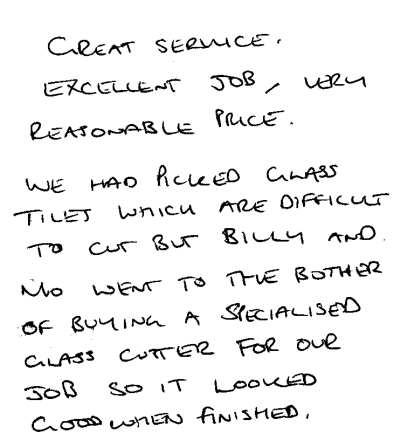 GREAT SERVICE.
EXCELLENT JOB, VERY
REASONABLE PRICE.
WE HAD PICKED GLASS
TILES WHICH ARE DIFFICULT
TO CUT BUT BILLY AND
MO WENT TO THE BOTHER
OF BUYING A SPECIALISED
GLASS CUTTER FOR OUR
JOB SO IT LOOKED
GOOD WHEN FINISHED.